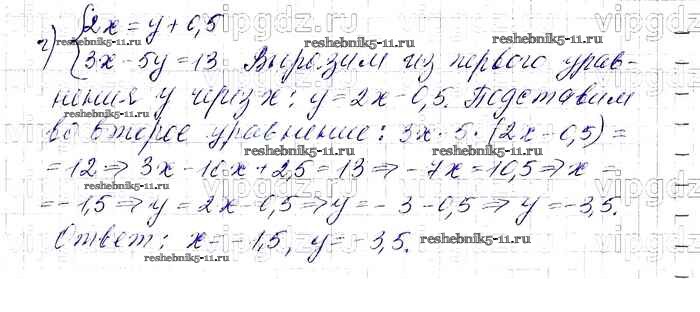 г) { 2x = y + 0,5
3x - 5y = 13. Выразим из первого урав-
нения y через x: y = 2x - 0,5. Подставим
во второе уравнение: 3x - 5 · (2x - 0,5) =
= 12 ⇒ 3x - 10x + 2,5 = 13 ⇒ - 7x = 10,5 ⇒ x =
= - 1,5 ⇒ y = 2x - 0,5 ⇒ y = - 3 - 0,5 ⇒ y = - 3,5.
Ответ: x = - 1,5, y = - 3,5.
reshebnik5-11.ru
reshebnik5-11.ru
reshebnik5-11.ru
reshebnik5-11.ru
reshebnik5-11.ru
reshebnik5-11.ru
reshebnik5-11.ru
reshebnik5-11.ru
reshebnik5-11.ru
vipgdz
vipgdz
vipgdz
vipgdz